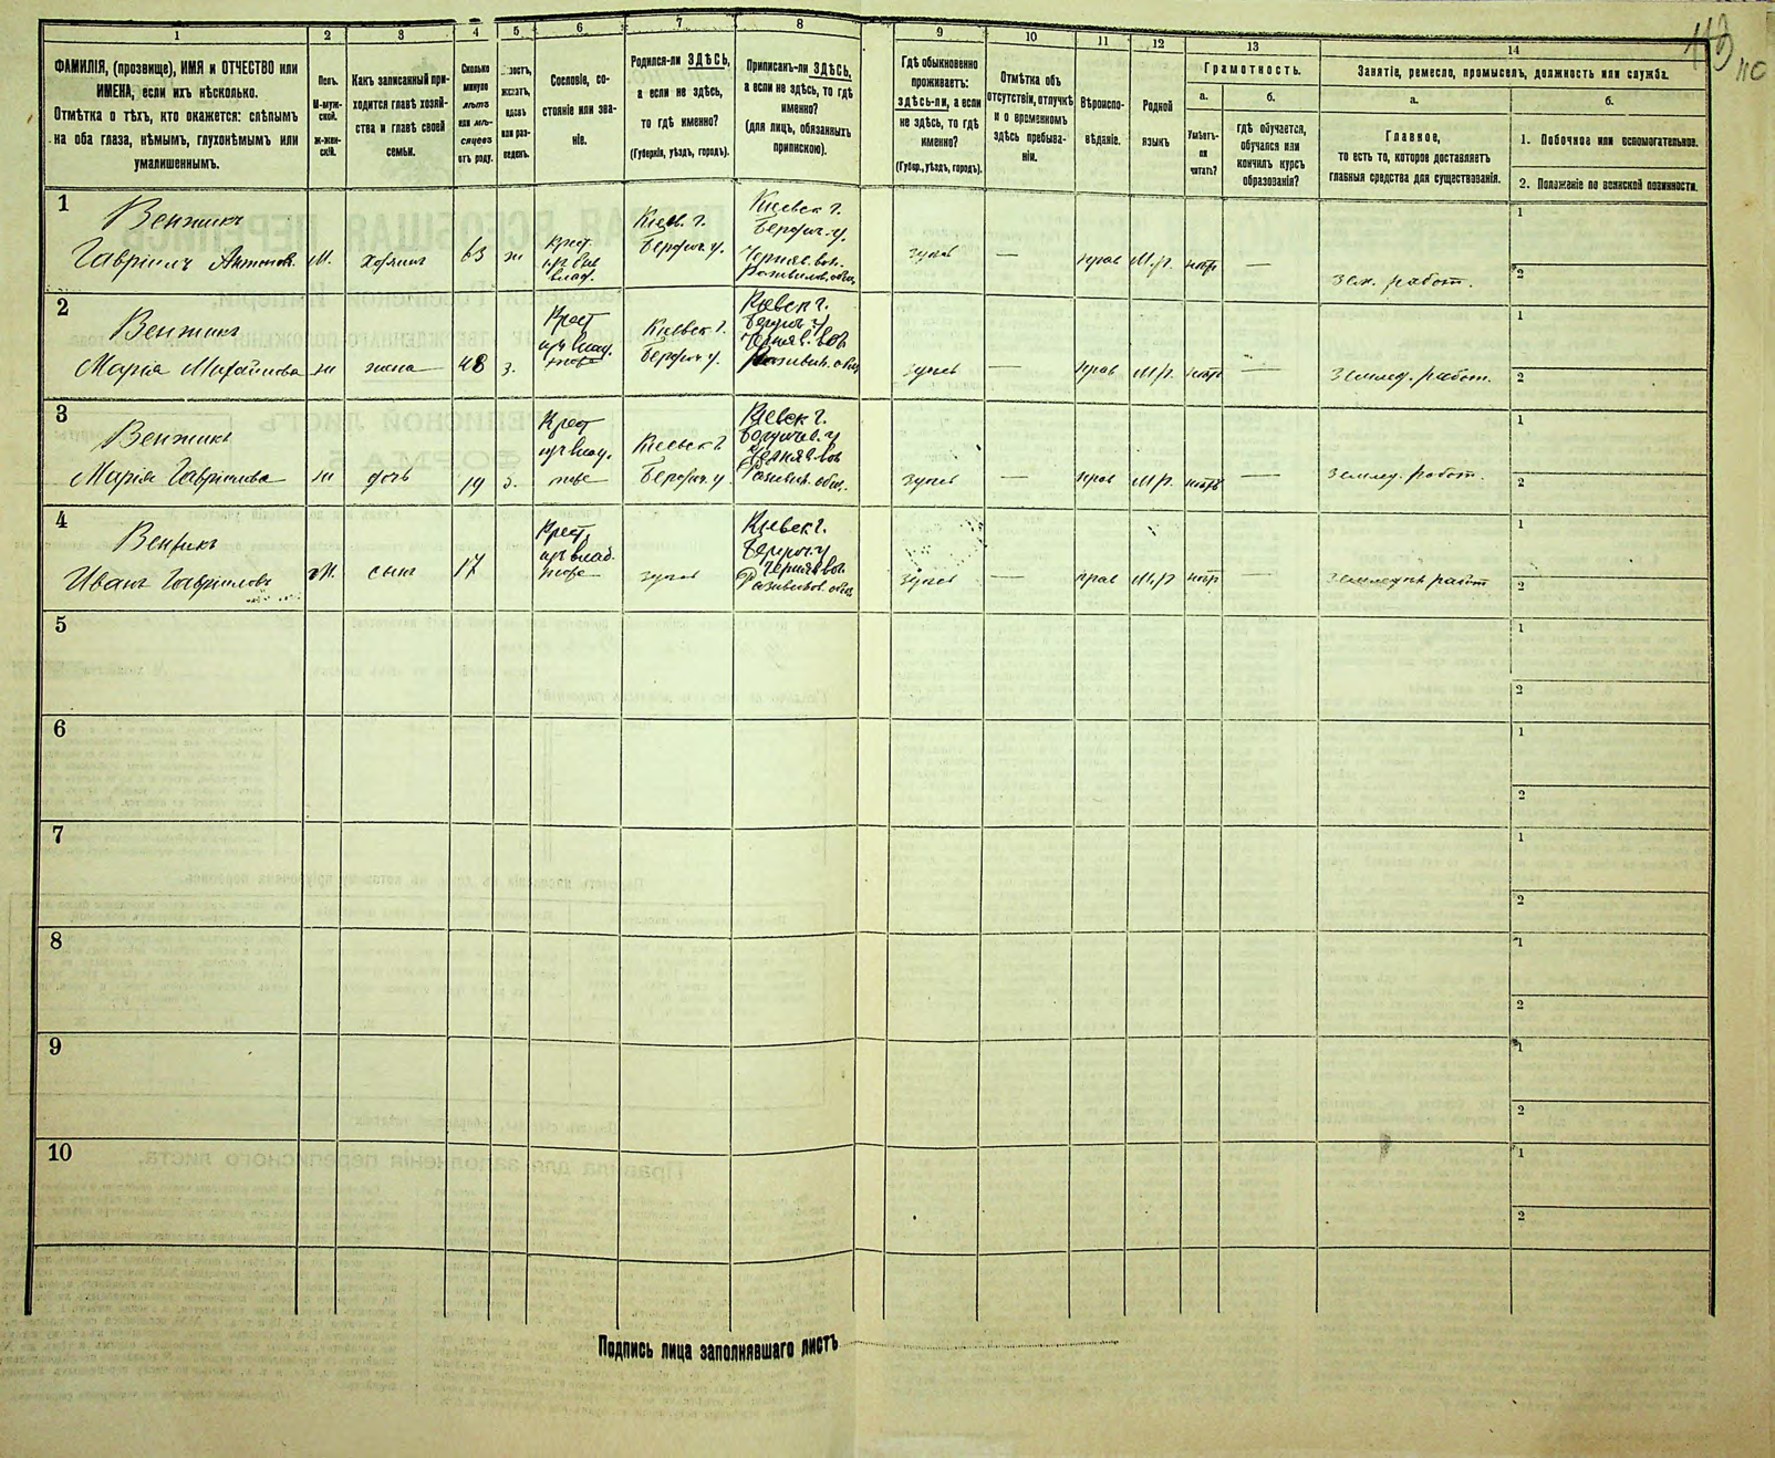 113
110
1 2 3 4 5 6 7 8 9 10 11 12 13 14
ФАМИЛІЯ, (прозвище), ИМЯ и ОТЧЕСТВО или
ИМЕНА, если ихъ нѣсколько.
Отмѣтка о тѣхъ, кто окажется: слѣпымъ
на оба глаза, нѣмымъ, глухонѣмымъ или
умалишеннымъ.
Полъ.
М-муж-
ской.
ж-жен-
скій.
Какъ записанный при-
ходится главѣ хозяй-
ства и главѣ своей
семьи.
Сколько
минуло
лѣтъ
или мѣ-
сяцевъ
отъ роду.
лостъ,
женатъ,
вдовъ
или раз-
веденъ.
Сословіе, со-
стояніе или зва-
ніе.
Родился-ли ЗДѢСЬ,
а если не здѣсь,
то гдѣ именно?
(Губернія, уѣздъ, городъ).
Приписанъ-ли ЗДѢСЬ,
а если не здѣсь, то гдѣ
именно?
(для лицъ, обязанныхъ
припискою).
Гдѣ обыкновенно
проживаетъ:
здѣсь-ли, а если
не здѣсь, то гдѣ
именно?
(Губер., уѣздъ, городъ).
Отмѣтка объ
отсутствіи, отлучкѣ
и о временномъ
здѣсь пребыва-
ніи.
Вѣроиспо-
вѣданіе.
Родной
языкъ
Грамотность.
а.
Умѣетъ-
ли
читать?
б.
гдѣ обучается,
обучался или
кончилъ курсъ
образованія?
Занятіе, ремесло, промыселъ, должность или служба.
а.
Главное,
то есть то, которое доставляетъ
главныя средства для существованія.
б.
1. Побочное или вспомогательное.
2. Положеніе по воинской повинности.
1
Венжикъ
Гавріилъ Антонов.
М.
хозяинъ
63
ж
Крест.
из быв
влад.
Кіев. г.
Бердич. у.
Кіевск г.
Бердич. у.
Черняв. вол.
здѣсь
—
прав
М.р.
нѣтъ
—
Зем. работ.
1
2
2
Венжикъ
Марія Михайлова
ж
жена
48
з.
Крест
изъ влад.
тоже
Кіевск г.
Бердич у.
Кіевск г.
Бердич у
Черняв. вол
здѣсь
—
прав
М.р.
нѣтъ
—
Землед. работ.
1
2
3
Венжикъ
Марія Гавріилова
ж
дочь
19
д.
Крест
изъ влад.
тоже
Кіевск г
Бердич. у
Кіевск г.
Бердичев. у
Черняв. вол
здѣсь
—
прав
М.р.
нѣтъ
—
Землед. работ.
1
2
4
Венжикъ
Иванъ Гавріиловъ
М.
сынъ
17
Крест,
изъ влад.
тоже
здѣсь
Кіевск г.
Бердич. у
Черняв вол.
здѣсь
—
прав
М.р
нѣтр
—
Землед. работ
1
2
5
1
2
6
1
2
7
1
2
8
1
2
9
1
2
10
1
2
Подпись лица заполнявшаго листъ